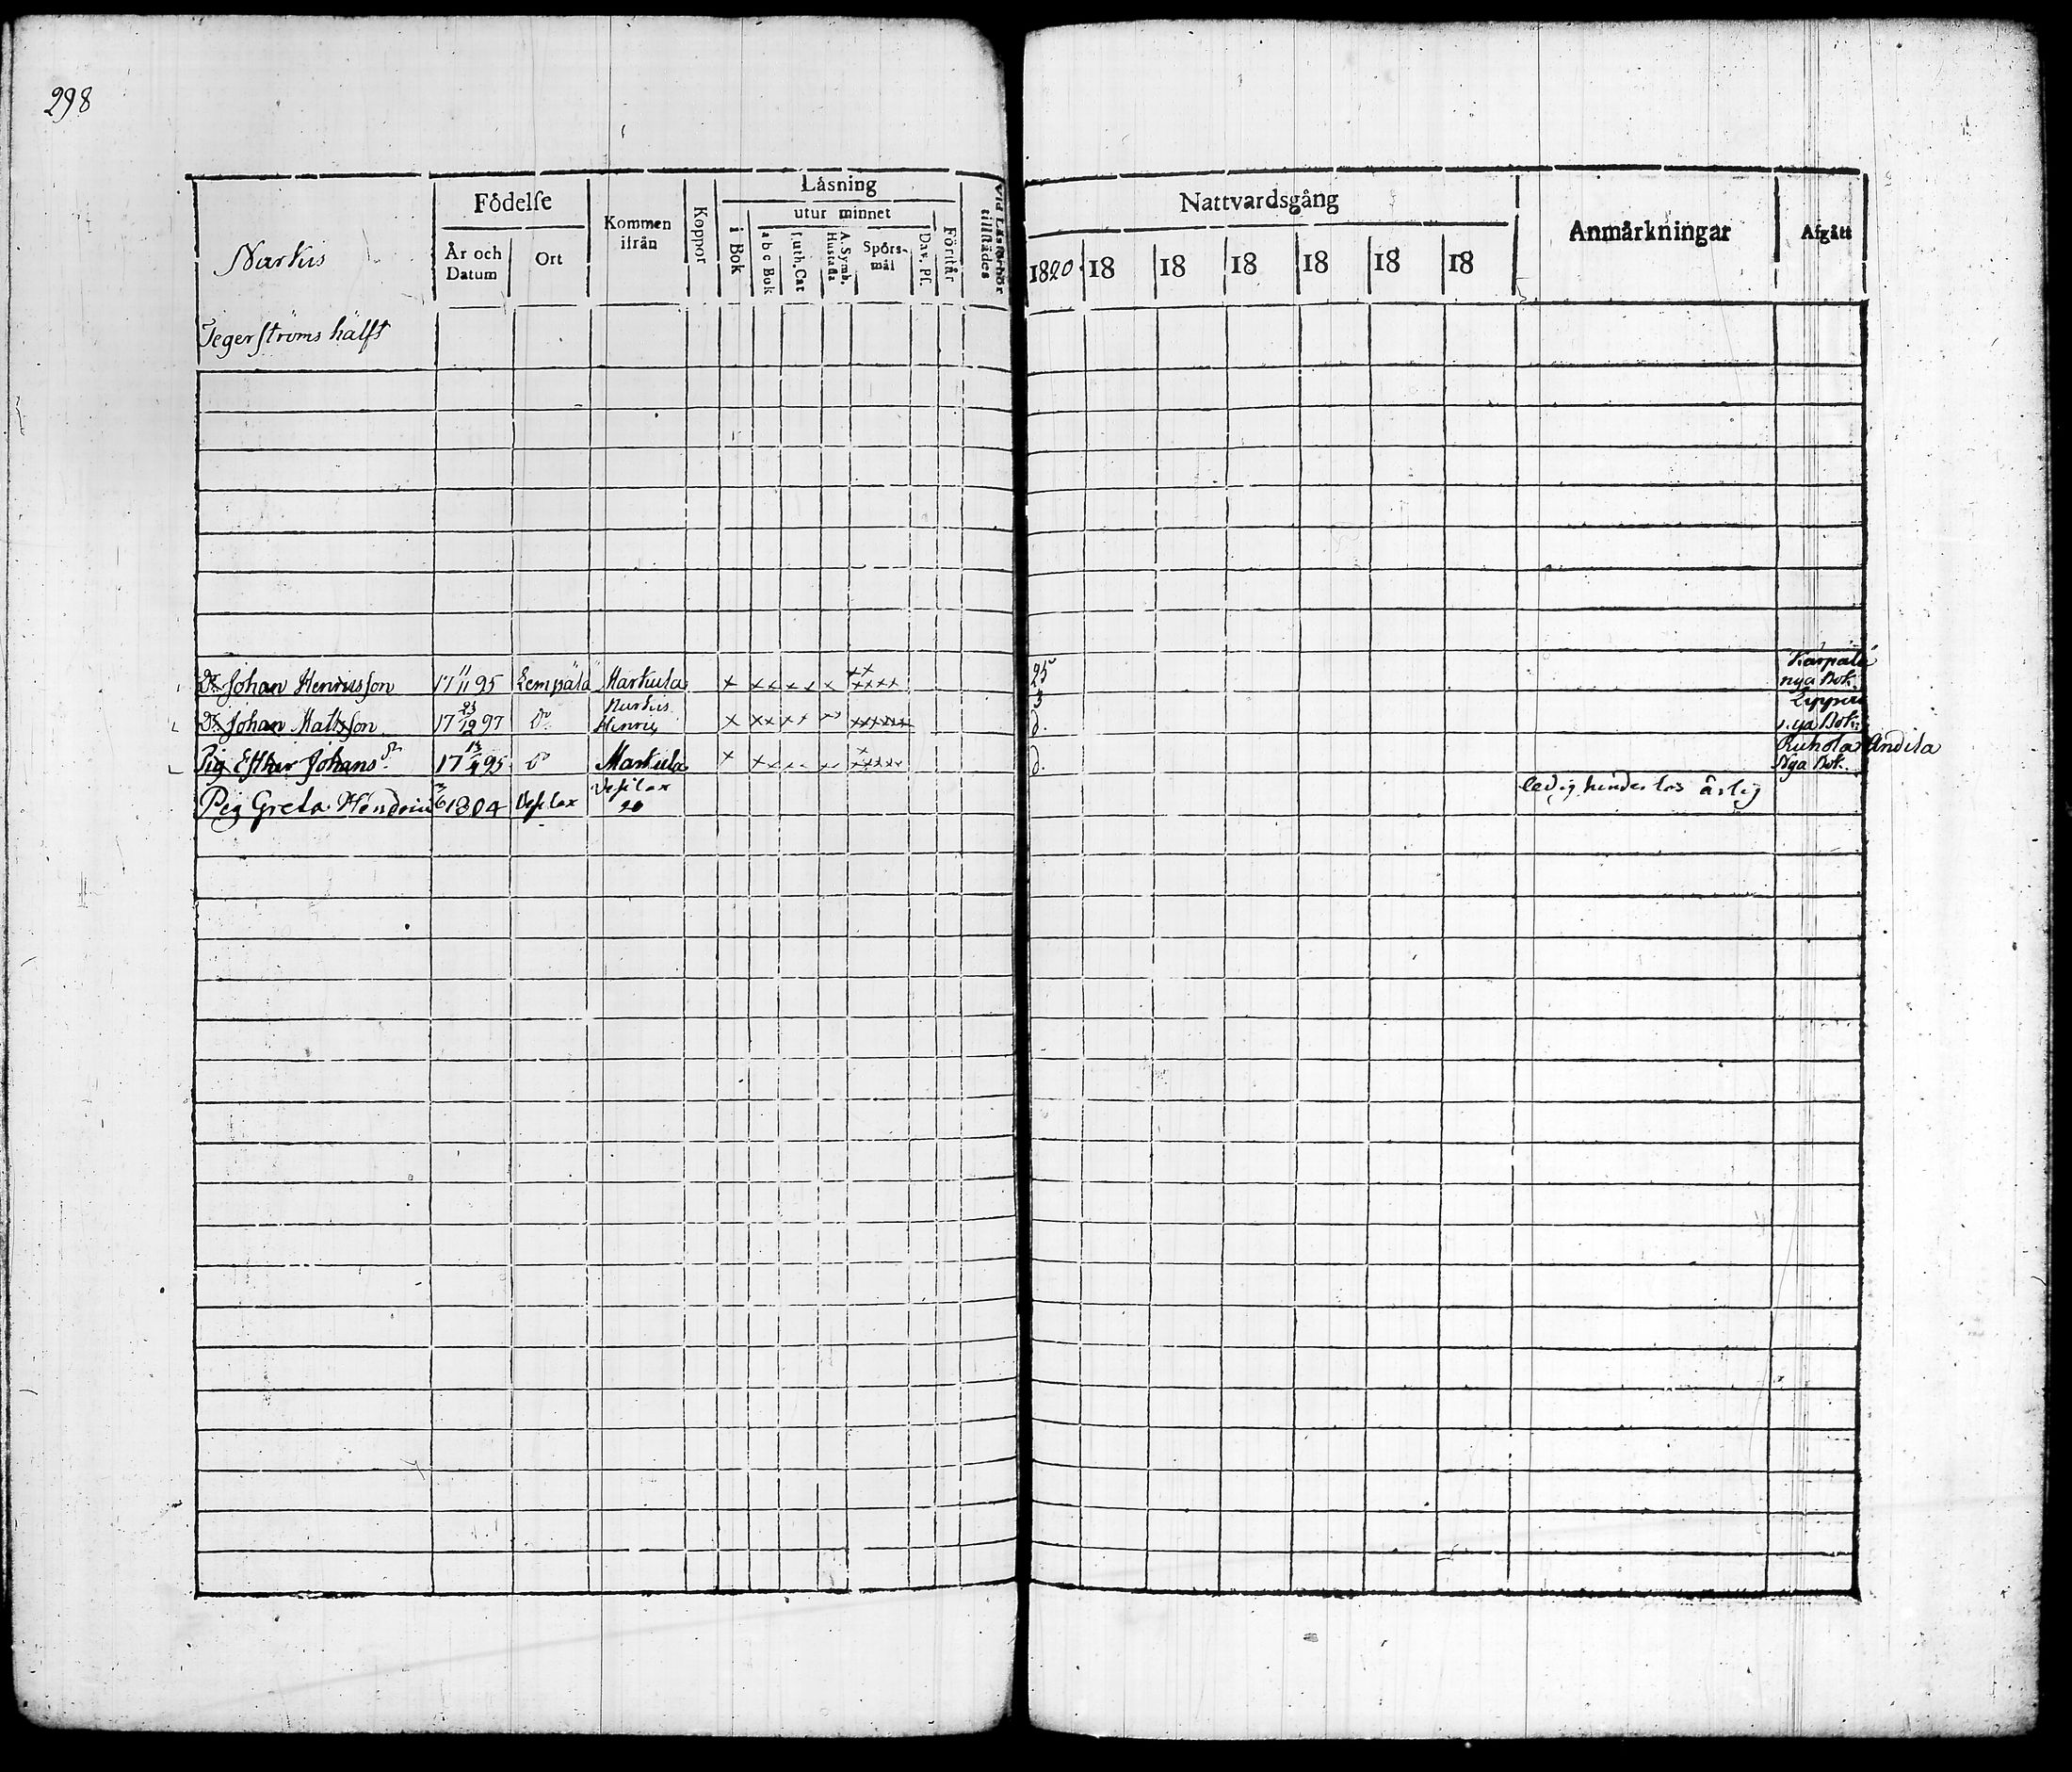 298
Narkis
Födelſe
År och Datum
Ort
Kommen ifrån
Koppor
Låsning
i Bok
utur minnet
a b c Bok
Luth. Cat
A. Symb. Hustafla
Spörs-mål
Dav. Pſ.
Förstår
Vid Låsförhör tillſtådes
Nattvardsgång
1820 18 18 18 18 18 18
Anmårkningar
Afgått
Tegerſtröms hälft
Dr. Johan Henriusſon 17 11/11 95 Lempälä Markula × 25 Karpala nya Bok.
Dr. Johan Mattsſon 17 23/12 97 Do Henric × 3 d. nya Bok.
Pig Esther Johans dr 17 13/4 95 Do Markula × d. Andila Nya Bok.
Pig Greta 1804 Veſilax Veſilax 20 ledig hinderlös ärlig